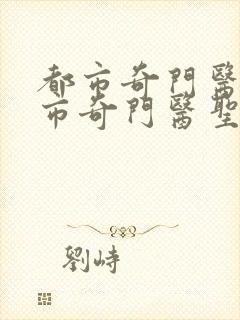 都市奇門醫
市奇門醫聖
劉峙